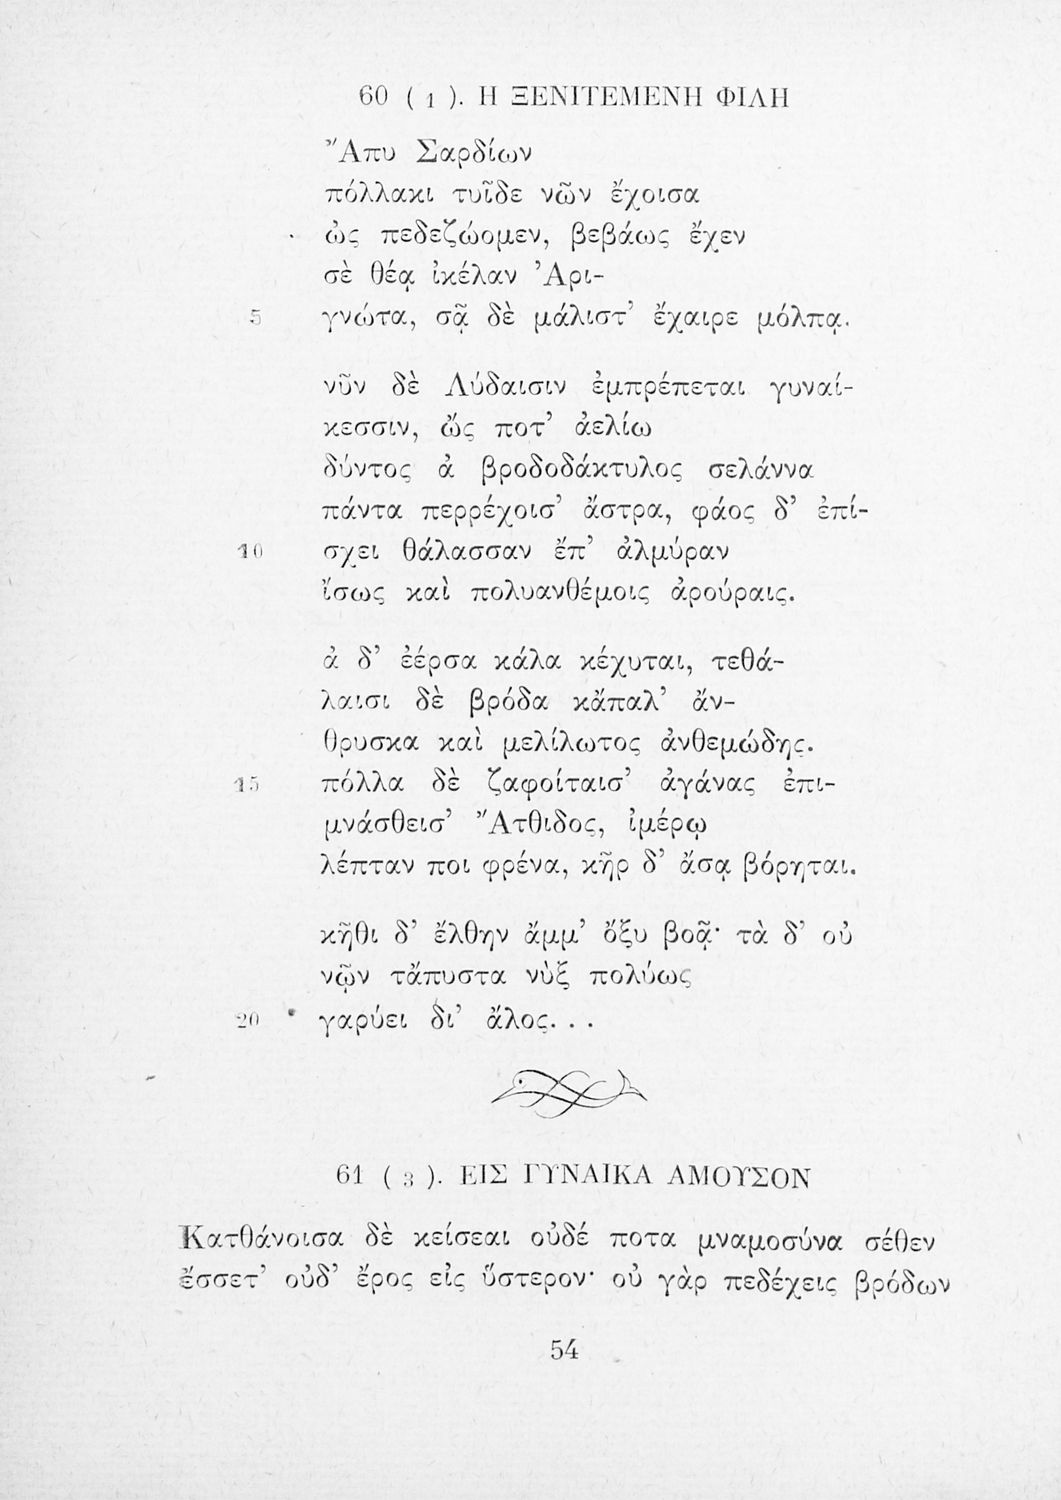 60 ( 1 ). Η ΞΕΝΙΤΕΜΕΝΗ ΦΙΛΗ
Ἄπυ Σαρδίων
πόλλακι τυῖδε νῶν ἔχοισα
ὠς πεδεζώομεν, βεβάως ἔχεν
σὲ θέᾳ ἰκέλαν Ἀρι-
5 γνώτα, σᾷ δὲ μάλιστ’ ἔχαιρε μόλπᾳ.
νῦν δὲ Λύδαισιν ἐμπρέπεται γυναί-
κεσσιν, ὤς ποτ’ ἀελίω
δύντος ἀ βροδοδάκτυλος σελάννα
πάντα περρέχοισ’ ἄστρα, φάος δ’ ἐπί-
10 σχει θάλασσαν ἔπ’ ἀλμύραν
ἴσως καὶ πολυανθέμοις ἀρούραις.
ἀ δ’ ἐέρσα κάλα κέχυται, τεθά-
λαισι δὲ βρόδα κἄπαλ’ ἄν-
θρυσκα καὶ μελίλωτος ἀνθεμώδης.
15 πόλλα δὲ ζαφοίταισ’ ἀγάνας ἐπι-
μνάσθεισ’ Ἄτθιδος, ἰμέρῳ
λέπταν ποι φρένα, κῆρ δ’ ἄσᾳ βόρηται.
κῆθι δ’ ἔλθην ἄμμ’ ὄξυ βοᾷ· τὰ δ’ οὐ
νῷν τἄπυστα νὺξ πολύως
20 γαρύει δι’ ἄλος. . .
61 ( 3 ). ΕΙΣ ΓΥΝΑΙΚΑ ΑΜΟΥΣΟΝ
Κατθάνοισα δὲ κείσεαι οὐδέ ποτα μναμοσύνα σέθεν
ἔσσετ’ οὐδ’ ἔρος εἰς ὔστερον· οὐ γὰρ πεδέχεις βρόδων
54